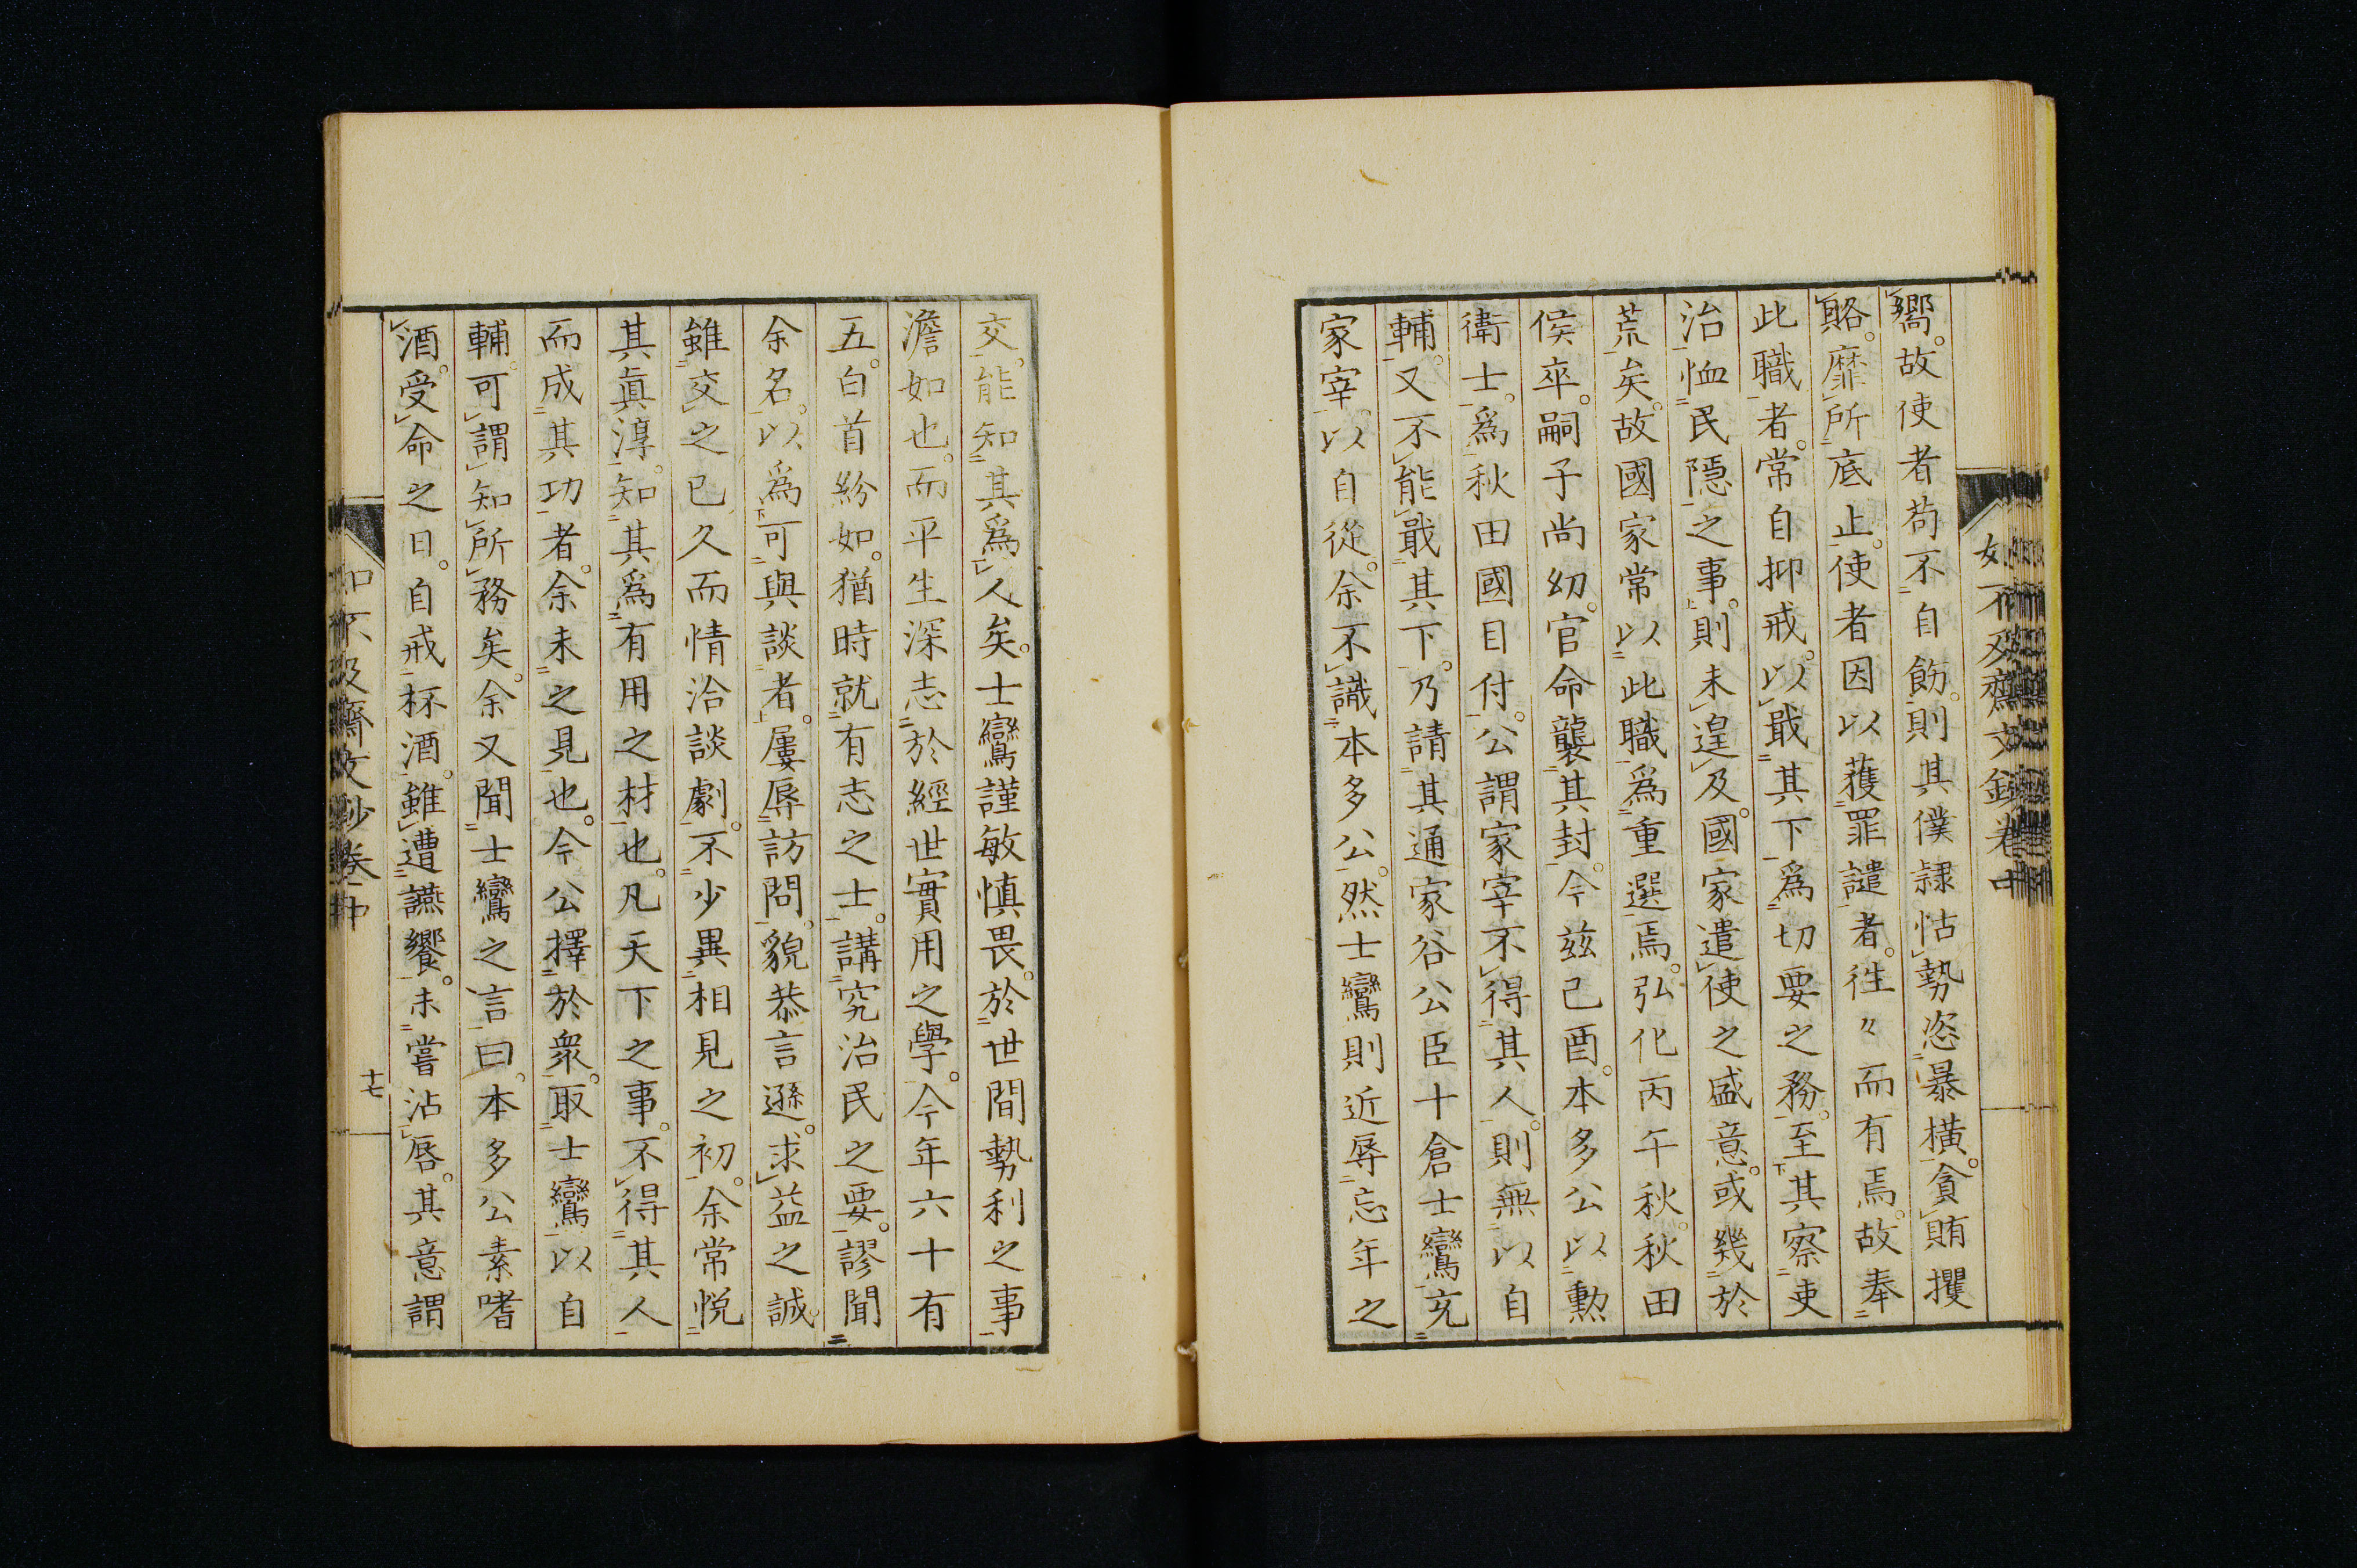 嚮。故使者苟不自飭。則其僕隷怙勢恣暴横。貪賄攫
賂。靡所底止。使者因以獲罪譴者。往々而有焉。故奉
此職者。常自抑戒。以戢其下。爲切要之務。至其察吏
治恤民隱之事。則未遑及。國家遣使之盛意。或幾於
荒矣。故國家常以此職爲重選焉。弘化丙午秋。秋田
侯卒。嗣子尚幼。官命襲其封。今茲己酉。本多公以勲
衛士。爲秋田國目付。公謂家宰不得其人。則無以自
輔。又不能戢其下。乃請其通家谷公臣十倉士鸞充
家宰。以自從。余不識本多公。然士鸞則近辱忘年之
如不及齋文鈔卷中
交。能知其爲人矣。士鸞謹敏慎畏。於世間勢利之事
澹如也。而平生深志於經世實用之學。今年六十有
五。白首紛如。猶時就有志之士。講究治民之要。謬聞
余名。以爲可與談者。屢辱訪問。貌恭言遜。求益之誠。
雖交之已久而情洽談劇。不少異相見之初。余常悦
其眞淳。知其爲有用之材也。凡天下之事。不得其人
而成其功者。余未之見也。今公擇於衆。取士鸞以自
輔。可謂知所務矣。余又聞士鸞之言。曰。本多公素嗜
酒。受命之日。自戒杯酒。雖遭讌饗。未嘗沾唇。其意謂
如不及齋文鈔卷中
十七